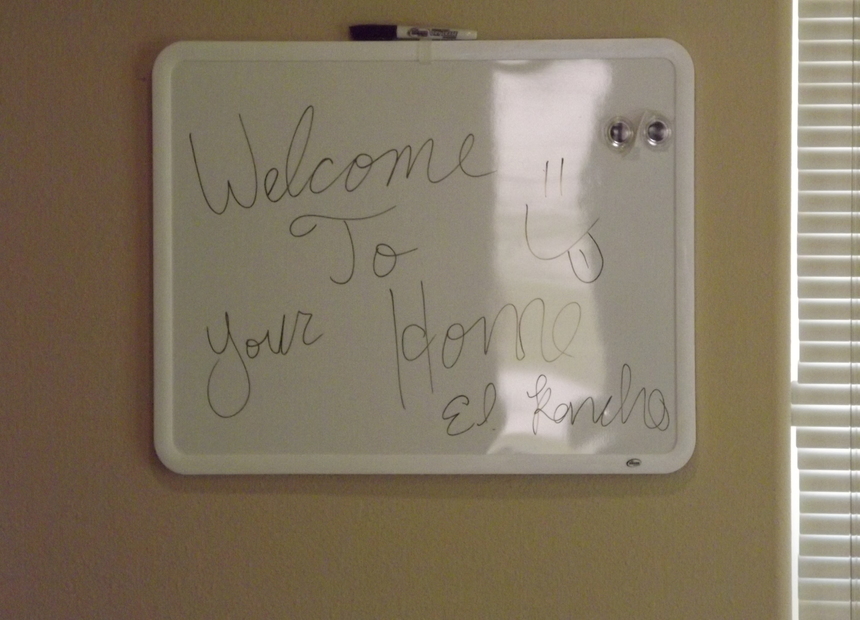 Welcome
To
your Home
El Rancho